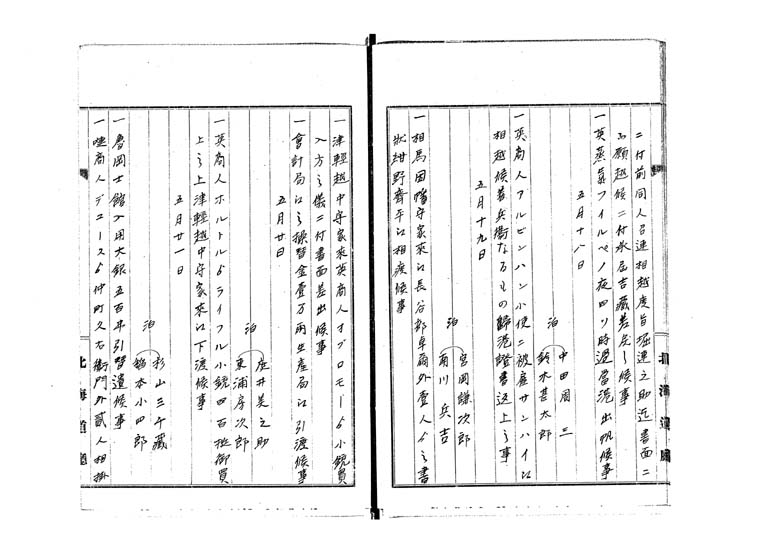 ニ付前同人召連相越度旨堀達之助近書面ニ
而願越候ニ付承届吉蔵差戻し候事
一英蒸気フイルペノ夜四ツ時過當港出帆候事
五月十八日
中田周三
泊
鈴木甚太郎
一英商人アルビンハン小使ニ被雇サンハイ江
相越候善兵衛なるもの歸港證書返上之事
五月十九日
宮岡謙次郎
泊
雨川兵吉
一相馬因幡守家来江長谷部卓爾外壹人ゟ之書
状紺野齊平江相渡候事
北海道廳
一津輕越中守家来英商人オブロモーゟ小銃買
入方之儀ニ付書面差出候事
一會計局江之操替金壹万両生産局江引渡候事
五月廿日
庄井美之助
泊
東浦房次郎
一英商人ホルトルゟライフル小銃四百挺御買
上之上津輕越中守家来江下渡候事
五月廿一日
杉山三午蔵
泊
鶴本小四郎
一魯岡士館入用大銀五百年引替遣候事
一嗹商人デュースゟ仲町久右衛門外貳人相掛
北海道廳